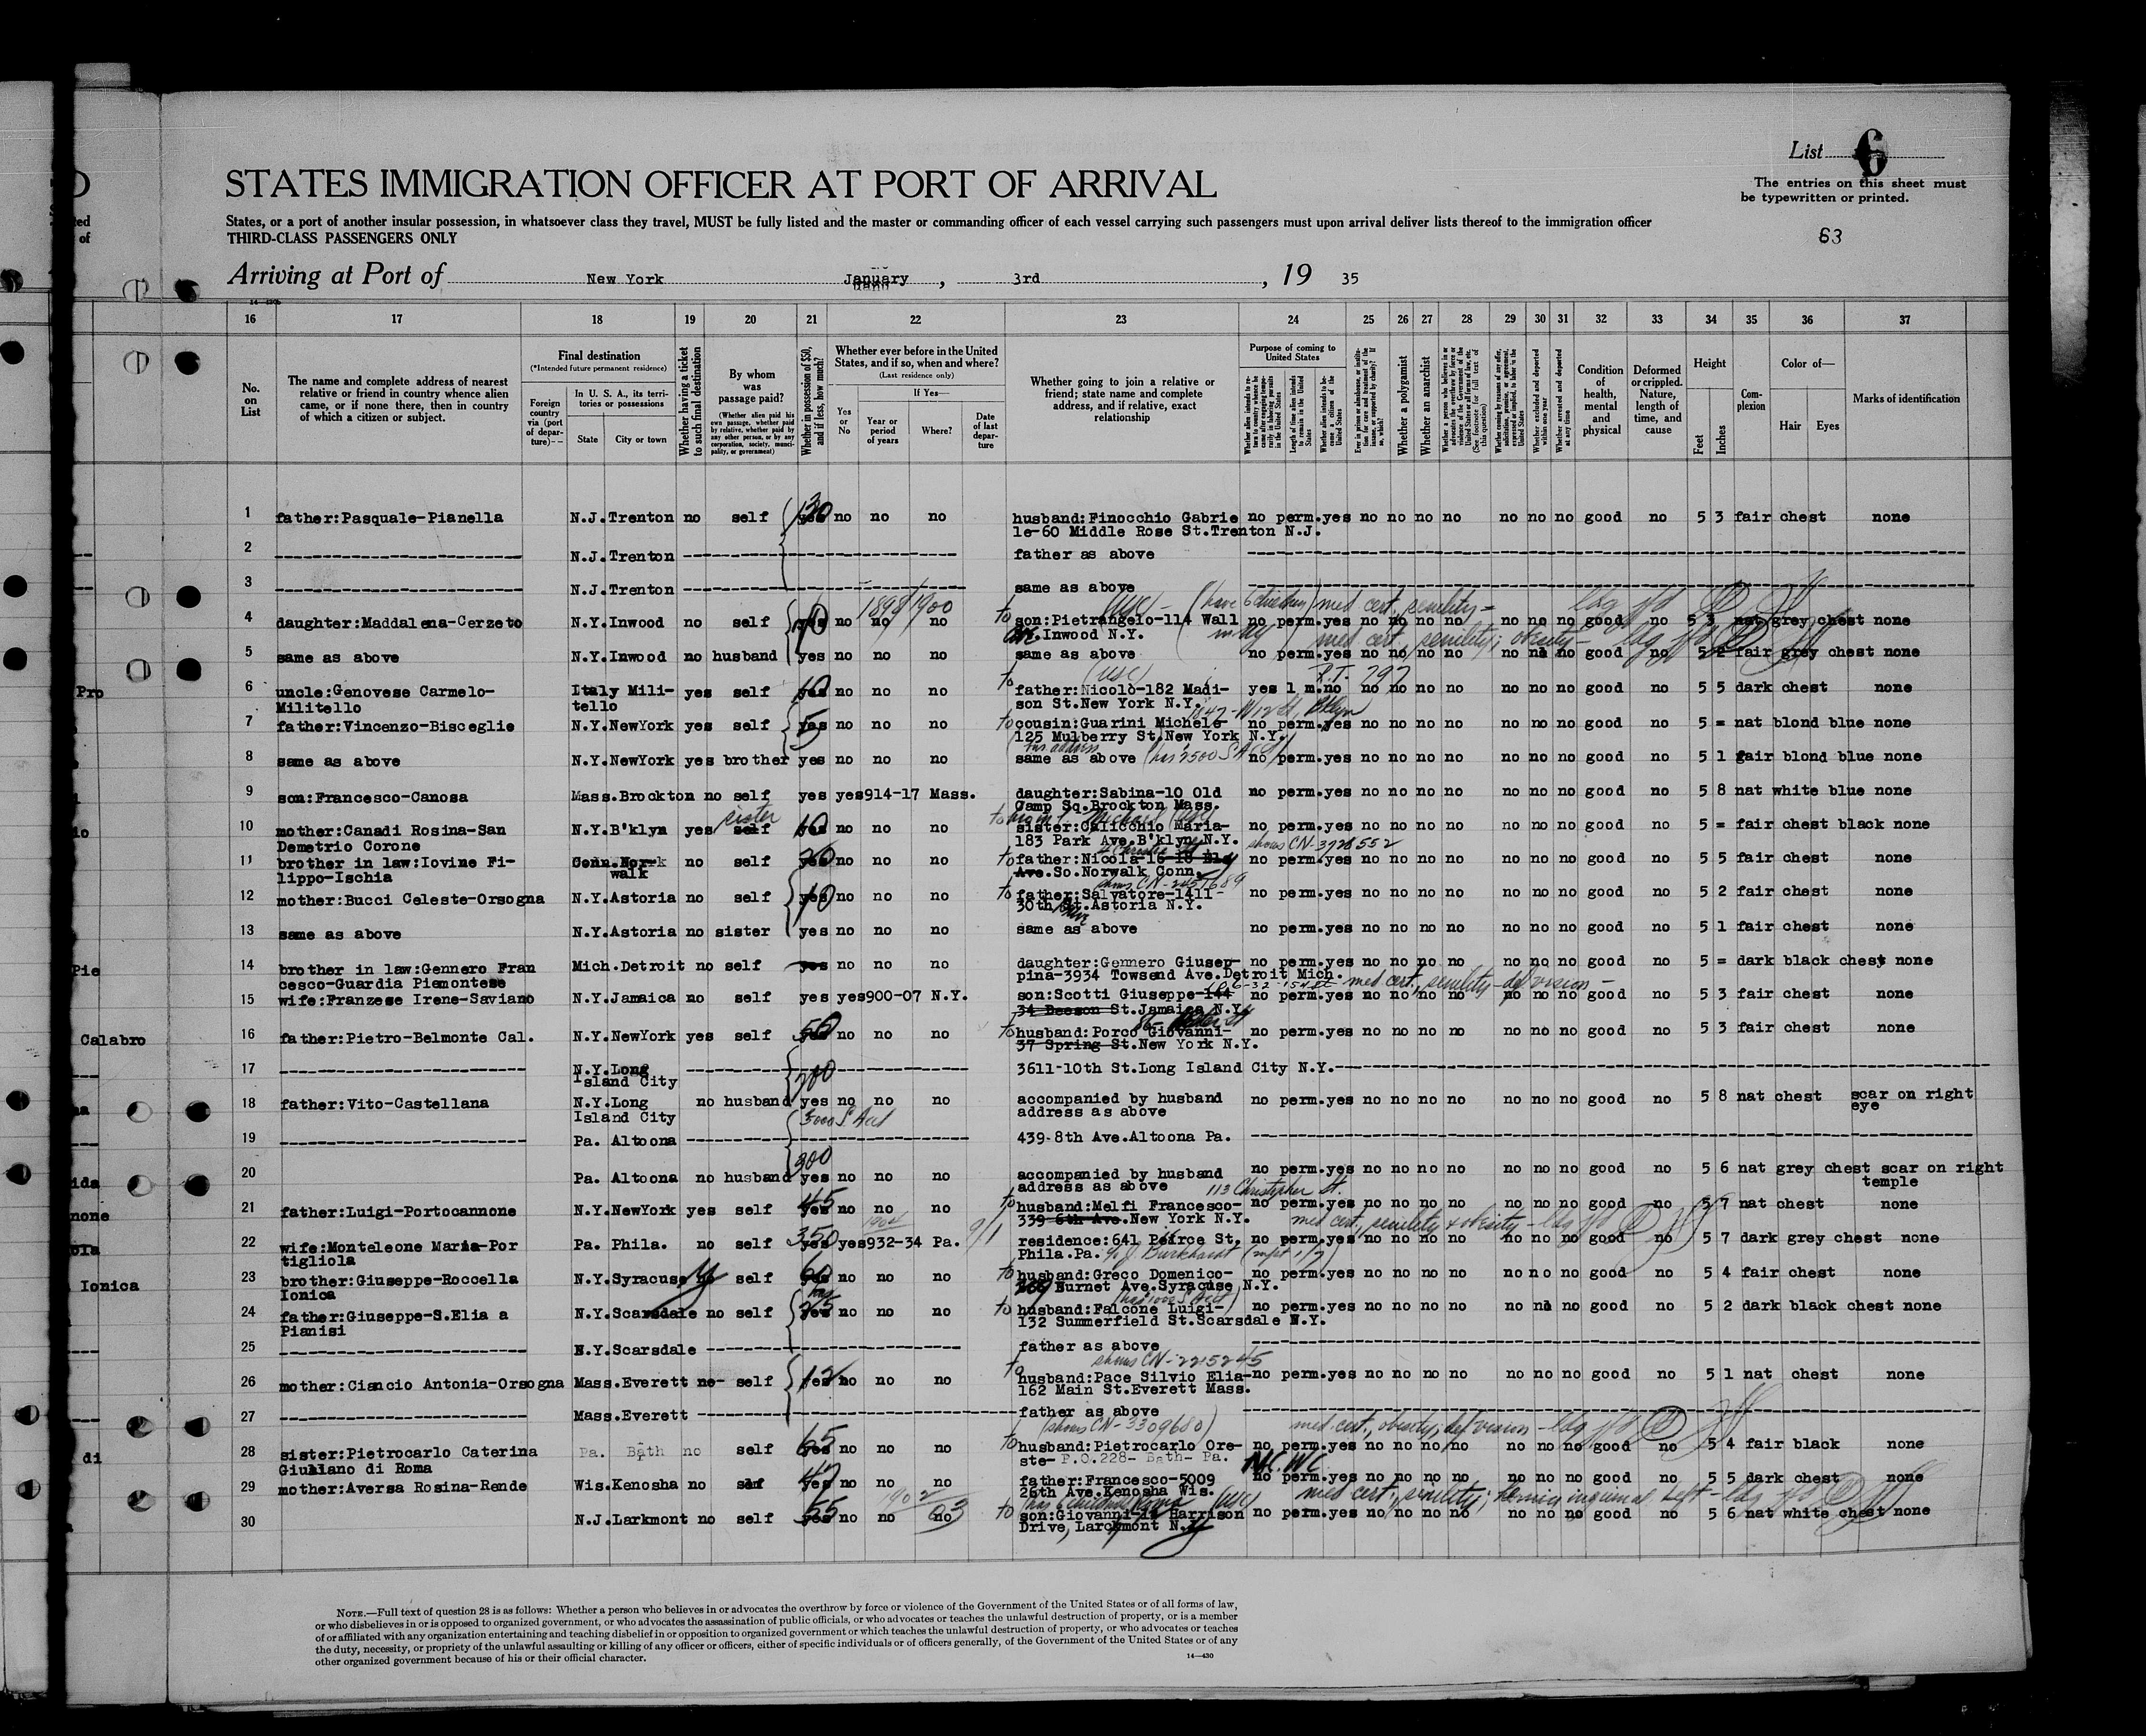 List 6
STATES IMMIGRATION OFFICER AT PORT OF ARRIVAL
The entries on this sheet must
be typewritten or printed.
States, or a port of another insular possession, in whatsoever class they travel, MUST be fully listed and the master or commanding officer of each vessel carrying such passengers must upon arrival deliver lists thereof to the immigration officer
THIRD-CLASS PASSENGERS ONLY
63
Arriving at Port of New York January, 3rd, 19 35
16 17 18 19 20 21 22 23 24 25 26 27 28 29 30 31 32 33 34 35 36 37
No. on List
The name and complete address of nearest relative or friend in country whence alien came, or if none there, then in country of which a citizen or subject.
Final destination
(*Intended future permanent residence)
Foreign country via (port of departure)--
In U. S. A., its territories or possessions
State
City or town
Whether having a ticket to such final destination
By whom was passage paid?
(Whether alien paid his own passage, whether paid by relative, whether paid by any other person, or by any corporation, society, municipality, or government)
Whether in possession of $50, and if less, how much?
Whether ever before in the United States, and if so, when and where?
(Last residence only)
Yes or No
If Yes—
Year or period of years
Where?
Date of last departure
Whether going to join a relative or friend; state name and complete address, and if relative, exact relationship
Purpose of coming to United States
Whether a polygamist
Whether an anarchist
Condition of health, mental and physical
Deformed or crippled. Nature, length of time, and cause
Height
Feet
Inches
Complexion
Color of—
Hair
Eyes
Marks of identification
1 father:Pasquale-Pianella N.J.Trenton no self 30 no no no husband:Finocchio Gabrie no perm.yes no no no no no no no good no 5 3 fair chest none
le-60 Middle Rose St.Trenton N.J.
2 N.J.Trenton father as above
3 N.J.Trenton same as above
1898/1900 (have 6 children) med cert. senility
4 daughter:Maddalena-Cerzeto N.Y.Inwood no self yes no no no to son:Pietrangelo-114 Wall no perm.yes no no no no no no no good no 5 3 nat grey chest none
Inwood N.Y. med cert. senility; obesity
5 same as above N.Y.Inwood no husband yes no no no same as above no perm.yes no no no no no no no good no 5 2 fair grey chest none
(USC) P.T. 297
6 uncle:Genovese Carmelo- Italy Mili- yes self 10 no no no to father:Nicolò-182 Madi- yes 1 m.no no no no no no no no good no 5 5 dark chest none
Militello tello son St.New York N.Y.
7 father:Vincenzo-Bisceglie N.Y.NewYork yes self yes no no no to cousin:Guarini Michele- no perm.yes no no no no no no no good no 5 = nat blond blue none
125 Mulberry St.New York N.Y.
8 same as above N.Y.NewYork yes brother yes no no no same as above no perm.yes no no no no no no no good no 5 1 fair blond blue none
9 son:Francesco-Canosa Mass.Brockton no self yes yes914-17 Mass. daughter:Sabina-10 Old no perm.yes no no no no no no no good no 5 8 nat white blue none
Camp Sq.Brockton Mass.
sister
10 mother:Canadi Rosina-San N.Y.B'klyn yes self 10 no no no sister:Calicchio Maria- no perm.yes no no no no no no no good no 5 = fair chest black none
Demetrio Corone 183 Park Ave.B'klyn N.Y. shows CN-3728552
11 brother in law:Iovine Fi- Conn.Nor- no self 20 no no no to father:Nicola-16-18 Ely no perm.yes no no no no no no no good no 5 5 fair chest none
lippo-Ischia walk Ave.So.Norwalk Conn.
shows CN-2457689
12 mother:Bucci Celeste-Orsogna N.Y.Astoria no self 10 no no no to father:Salvatore-1411- no perm.yes no no no no no no no good no 5 2 fair chest none
30th St.Astoria N.Y.
13 same as above N.Y.Astoria no sister yes no no no same as above no perm.yes no no no no no no no good no 5 1 fair chest none
14 brother in law:Gennero Fran Mich.Detroit no self yes no no no daughter:Gennero Giusep- no perm.yes no no no no no no no good no 5 = dark black chest none
cesco-Guardia Piemontese pina-3934 Towsend Ave.Detroit Mich. med cert., senility def vision
15 wife:Franzese Irene-Saviano N.Y.Jamaica no self yes yes900-07 N.Y. son:Scotti Giuseppe-144 no perm.yes no no no no no no no good no 5 3 fair chest none
34 Beeson St.Jamaica N.Y.
16 father:Pietro-Belmonte Cal. N.Y.NewYork yes self 50 no no no to husband:Porco Giovanni- no perm.yes no no no no no no no good no 5 3 fair chest none
37 Spring St.New York N.Y.
17 N.Y.Long 200 3611-10th St.Long Island City N.Y.
Island City
18 father:Vito-Castellana N.Y.Long no husband yes no no no accompanied by husband no perm.yes no no no no no no no good no 5 8 nat chest scar on right
Island City address as above eye
19 Pa. Altoona 439-8th Ave.Altoona Pa.
300
20 Pa. Altoona no husband yes no no no accompanied by husband no perm.yes no no no no no no no good no 5 6 nat grey chest scar on right
address as above 113 Christopher St. temple
21 father:Luigi-Portocannone N.Y.NewYork yes self 45 no no no to husband:Melfi Francesco- no perm.yes no no no no no no no good no 5 7 nat chest none
339-6th Ave.New York N.Y. med cert, senility & obesity
22 wife:Monteleone Maria-Por Pa. Phila. no self 350 yes932-34 Pa. residence:641 Peirce St. no perm.yes no no no no no no no good no 5 7 dark grey chest none
tigliola Phila.Pa.
23 brother:Giuseppe-Roccella N.Y.Syracuse no self 60 no no no to husband:Greco Domenico- no perm.yes no no no no no no no good no 5 4 fair chest none
Ionica Burnet Ave.Syracuse N.Y.
24 father:Giuseppe-S.Elia a N.Y.Scarsdale no self 25 no no no to husband:Falcone Luigi- no perm.yes no no no no no no no good no 5 2 dark black chest none
Pianisi 132 Summerfield St.Scarsdale N.Y.
25 N.Y.Scarsdale father as above
shows CN-2215245
26 mother:Ciancio Antonia-Orsogna Mass.Everett no- self 12 no no no to husband:Pace Silvio Elia- no perm.yes no no no no no no no good no 5 1 nat chest none
162 Main St.Everett Mass.
27 Mass.Everett father as above
(shows CN-3309680) med cert., obesity; def vision
28 sister:Pietrocarlo Caterina Pa. Bath no self 65 no no no to husband:Pietrocarlo Ore- no perm.yes no no no no no no no good no 5 4 fair black none
Giuliano di Roma ste- P.O.228- Bath- Pa.
29 mother:Aversa Rosina-Rende Wis.Kenosha no self yes no no no father:Francesco-5009 no perm.yes no no no no no no no good no 5 5 dark chest none
26th Ave.Kenosha Wis. med cert., senility; hernia inguinal left
30 N.J.Larkmont no self 55 no no no to son:Giovanni- Harrison no perm.yes no no no no no no no good no 5 6 nat white chest none
Drive, Larchmont N.Y.
NOTE.—Full text of question 28 is as follows: Whether a person who believes in or advocates the overthrow by force or violence of the Government of the United States or of all forms of law,
or who disbelieves in or is opposed to organized government, or who advocates the assassination of public officials, or who advocates or teaches the unlawful destruction of property, or is a member
of or affiliated with any organization entertaining and teaching disbelief in or opposition to organized government or which teaches the unlawful destruction of property, or who advocates or teaches
the duty, necessity, or propriety of the unlawful assaulting or killing of any officer or officers, either of specific individuals or of officers generally, of the Government of the United States or of any
other organized government because of his or their official character.
14—430